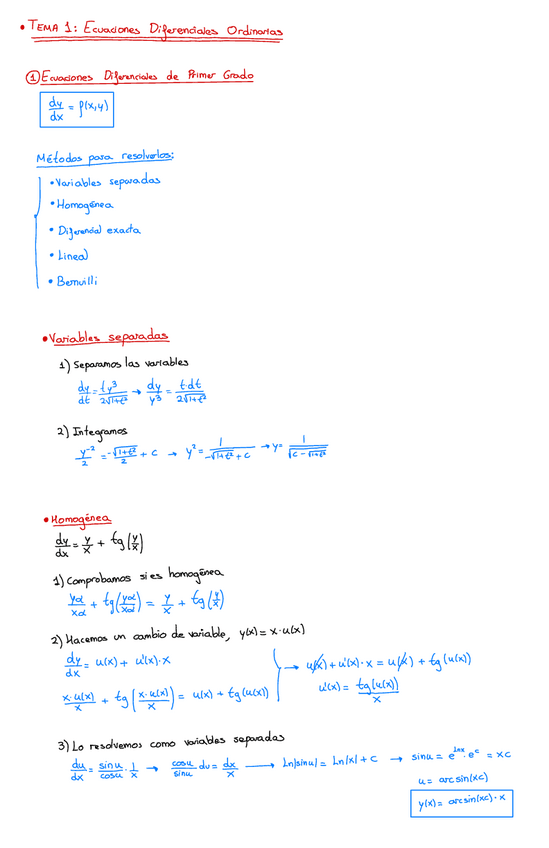 • TEMA 1: Ecuaciones Diferenciales Ordinarias
① Ecuaciones Diferenciales de Primer Grado
dy/dx = f(x,y)
Métodos para resolverlos:
• Variables separadas
• Homogénea
• Diferencial exacta
• Lineal
• Bernuilli
• Variables separadas
1) Separamos las variables
dy/dt = ty³/2√1+t² → dy/y³ = t·dt/2√1+t²
2) Integramos
y⁻²/2 = -√1+t²/2 + C → y² = 1/-√1+t² + C → y = 1/√C - √1+t²
• Homogénea
dy/dx = y/x + tg(y/x)
1) Comprobamos si es homogénea
yα/xα + tg(yα/xα) = y/x + tg(y/x)
2) Hacemos un cambio de variable, y(x) = x·u(x)
dy/dx = u(x) + u'(x)·x
x·u(x)/x + tg(x·u(x)/x) = u(x) + tg(u(x))
→ u(x) + u'(x)·x = u(x) + tg(u(x))
u'(x) = tg(u(x))/x
3) Lo resolvemos como variables separadas
du/dx = sinu/cosu · 1/x → cosu/sinu du = dx/x → Ln|sinu| = Ln|x| + C → sinu = e^lnx · e^c = xC
u = arcsin(xc)
y(x) = arcsin(xc)·x